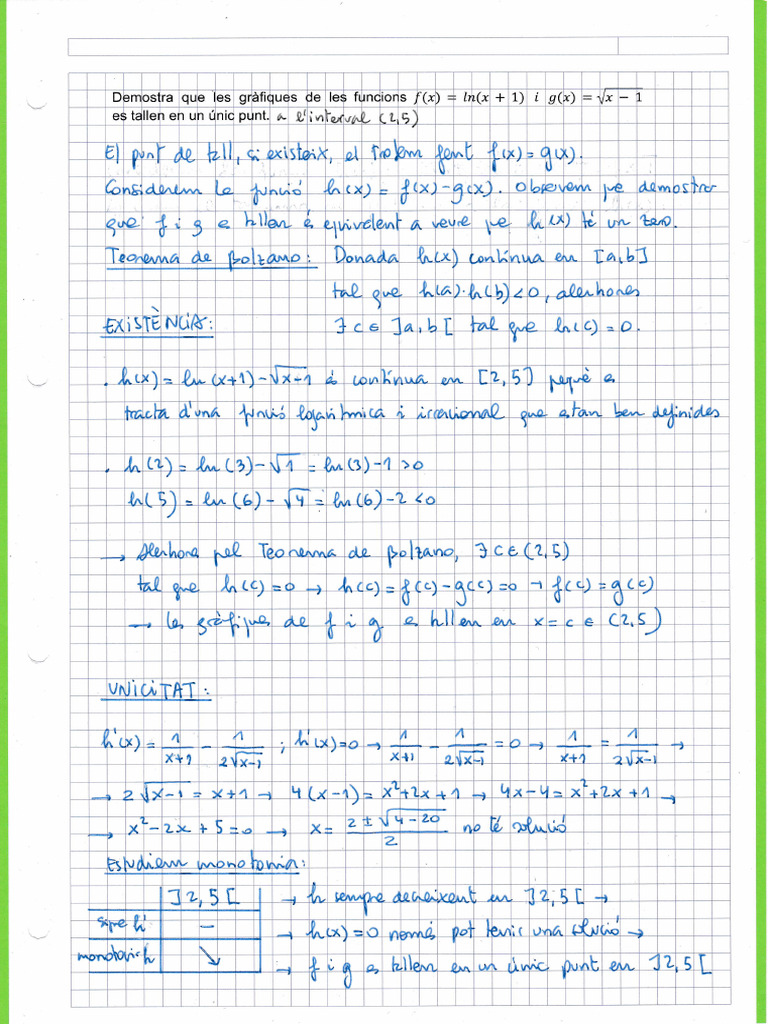 Demostra que les gràfiques de les funcions f(x) = ln(x + 1) i g(x) = √(x − 1)
es tallen en un únic punt. a l'interval (2,5)
El punt de tall, si existeix, el trobem fent f(x)=g(x).
Considerem la funció h(x) = f(x)-g(x). Observem que demostrar
que f i g es tallen és equivalent a veure que h(x) té un zero.
Teorema de Bolzano: Donada h(x) contínua en [a,b]
tal que h(a)·h(b)<0, aleshores
EXISTÈNCIA:
∃ c ∈ ]a,b[ tal que h(c)=0.
. h(x) = ln(x+1)-√(x-1) és contínua en [2,5] perquè es
tracta d'una funció logarítmica i irracional que estan ben definides
. h(2) = ln(3)-√1 = ln(3)-1 >0
h(5) = ln(6)-√4 = ln(6)-2 <0
→ Aleshores pel Teorema de Bolzano, ∃ c ∈ (2,5)
tal que h(c)=0 → h(c)=f(c)-g(c)=0 → f(c)=g(c)
→ les gràfiques de f i g es tallen en x=c ∈ (2,5)
UNICITAT:
h'(x) = 1/(x+1) - 1/(2√(x-1)) ; h'(x)=0 → 1/(x+1) - 1/(2√(x-1)) = 0 → 1/(x+1) = 1/(2√(x-1)) →
→ 2√(x-1) = x+1 → 4(x-1) = x²+2x+1 → 4x-4 = x²+2x+1 →
→ x²-2x+5=0 → x = (2±√(4-20))/2 no té solució
Estudiem monotonia:
]2,5[ → h sempre decreixent en ]2,5[ →
signe h' − → h(x)=0 només pot tenir una solució →
monotonia h ↘ → f i g es tallen en un únic punt en ]2,5[